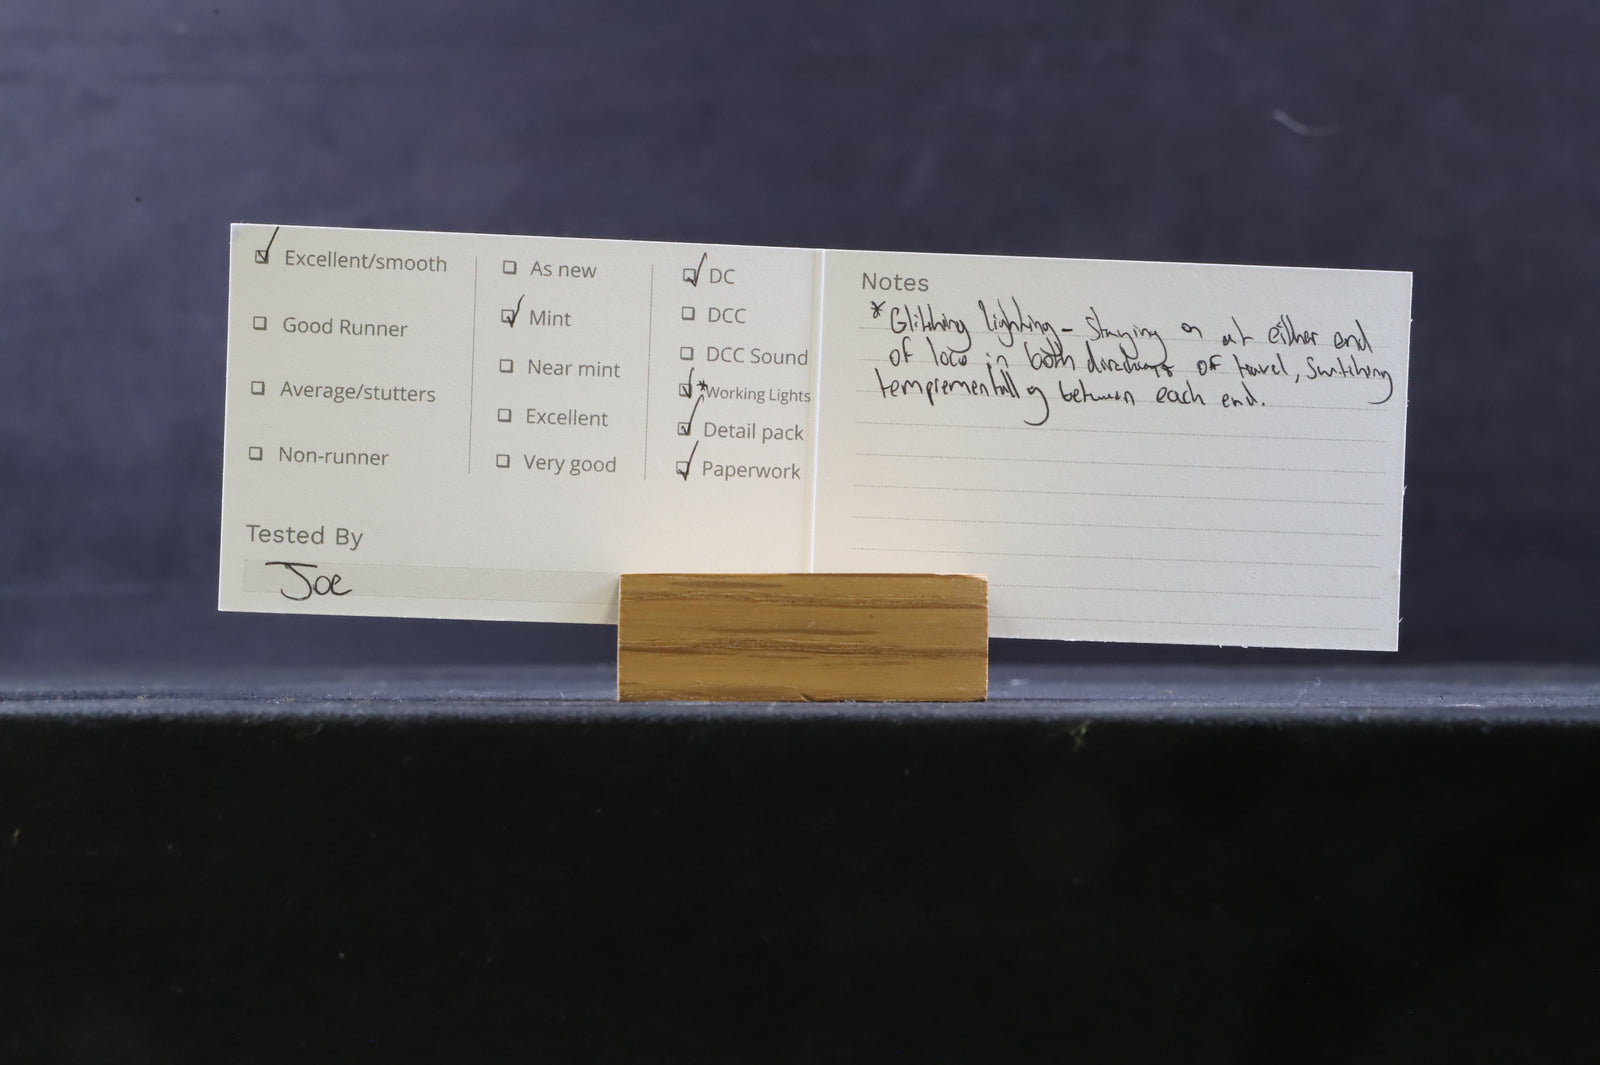 Excellent/smooth
Good Runner
Average/stutters
Non-runner
As new
Mint
Near mint
Excellent
Very good
DC
DCC
DCC Sound
*Working Lights
Detail pack
Paperwork
Tested By
Joe
Notes
*Glitching lighting - Staying on at either end
of loco in both directions of travel, Switching
temprementally between each end.